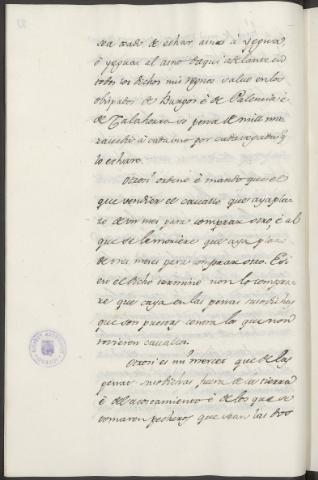 sea osado de echar asnos a yeguas,
ó yeguas al asno daqui adelante en
todos los dichos mis regnos salvo en los
obispados de Burgos é de Palencia é
de Calahorra so pena de mill mrs
a cada uno por cada vegada q.
lo echare.
Otrosi ordeno é mando que el
que vendiere el cavallo que aya plazo
de un mes para comprar otro, é al
que se le moriere que aya plazo
de tres meses para comprar otro. E si
en el dicho termino non lo compra
re que caya en las penas susodichas
que son puestas contra los que non
tovieren cavallos.
Otrosi es mi merced que de las
penas susodichas, fuera de la tierra
é del acostamiento é de los que se
tornaren pecheros que sean las dos